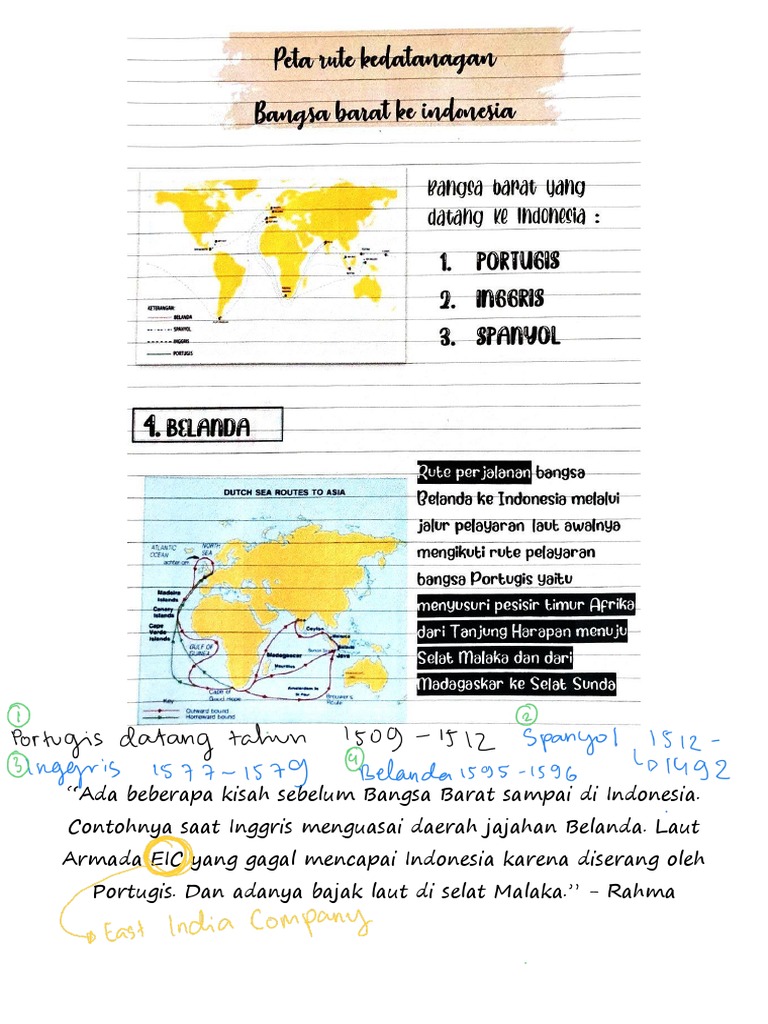 Peta rute kedatanagan
Bangsa barat ke indonesia
Bangsa barat yang
datang ke Indonesia :
1. PORTUGIS
2. INGGRIS
3. SPANYOL
KETERANGAN:
BELANDA
SPANYOL
INGGRIS
PORTUGIS
4. BELANDA
DUTCH SEA ROUTES TO ASIA
ATLANTIC
OCEAN
NORTH
SEA
achter om
Madeira
Islands
Canary
Islands
Cape
Verde
Islands
GULF OF
GUINEA
Ceylon
Malacca
Batavia
Java
Madagascar
Mauritius
Amsterdam Is
St Paul
Brouwer's
Route
AUSTRALIA
Cape of
Good Hope
Key
Outward bound
Homeward bound
Rute perjalanan bangsa
Belanda ke Indonesia melalui
jalur pelayaran laut awalnya
mengikuti rute pelayaran
bangsa Portugis yaitu
menyusuri pesisir timur Afrika
dari Tanjung Harapan menuju
Selat Malaka dan dari
Madagaskar ke Selat Sunda
① Portugis datang tahun 1509 - 1512
② Spanyol 1512 -
1492
③ Inggris 1577 - 1579
④ Belanda 1595 - 1596
"Ada beberapa kisah sebelum Bangsa Barat sampai di Indonesia.
Contohnya saat Inggris menguasai daerah jajahan Belanda. Laut
Armada EIC yang gagal mencapai Indonesia karena diserang oleh
Portugis. Dan adanya bajak laut di selat Malaka." - Rahma
East India Company